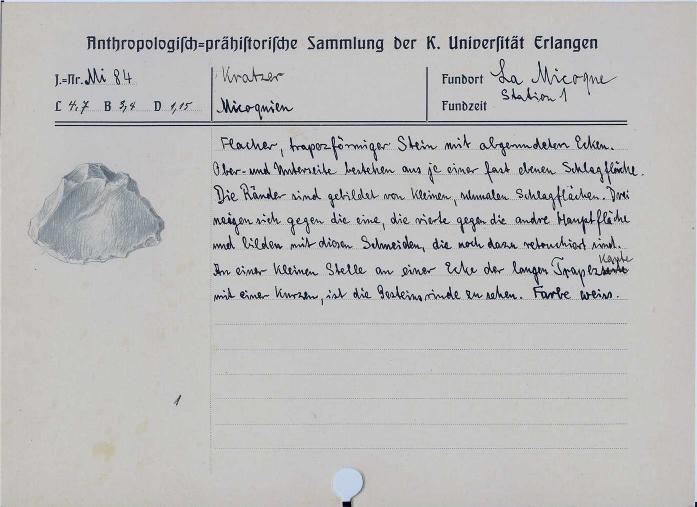 Anthropologisch=prähistorische Sammlung der K. Universität Erlangen
J.=Nr. Mi 84
Kratzer
Fundort La Micoque
Station 1
L 4,7 B 3,4 D 1,15
Micoquien
Fundzeit
Flacher, trapezförmiger Stein mit abgerundeten Ecken.
Ober- und Unterseite bestehen aus je einer fast ebenen Schlagfläche.
Die Ränder sind gebildet von kleinen, schmalen Schlagflächen. Drei
neigen sich gegen die eine, die vierte gegen die andre Hauptfläche
und bilden mit diesen Schneiden, die noch dazu retouchiert sind.
Kante
An einer kleinen Stelle an einer Ecke der langen Trapezseite
mit einer kurzen, ist die Gesteinsrinde zu sehen. Farbe weiss.
1